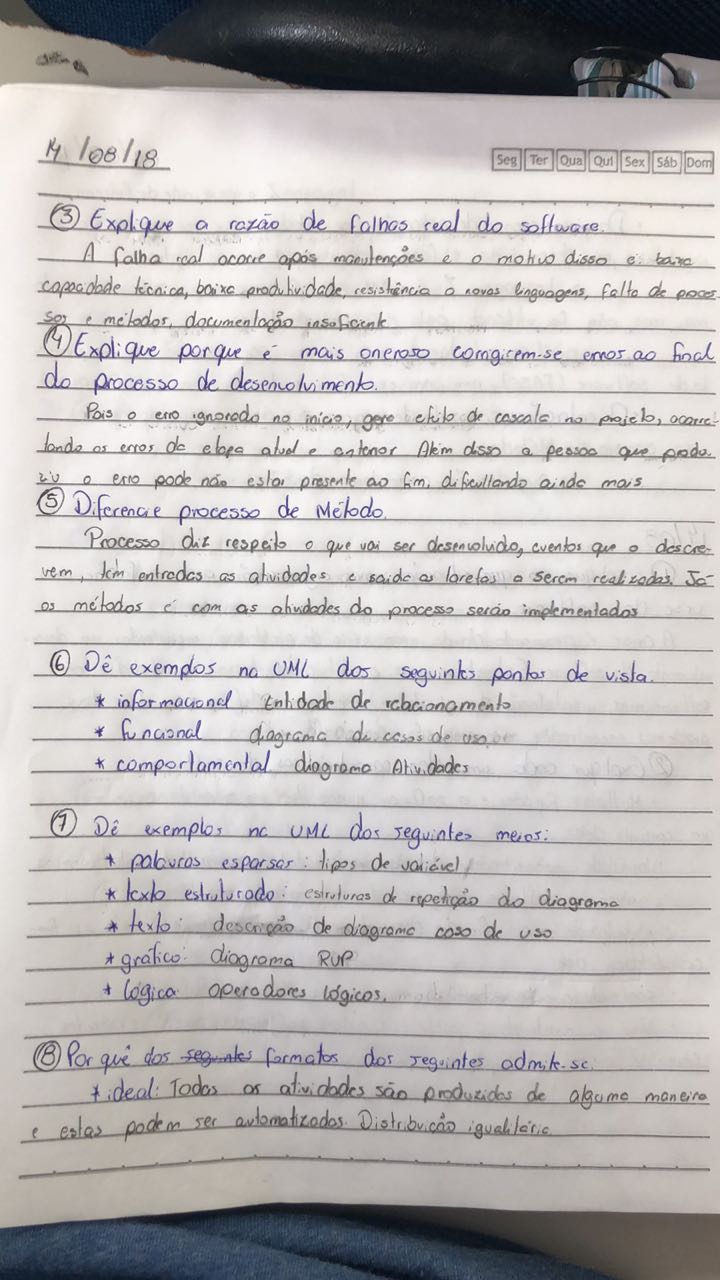 14/08/18
Seg Ter Qua Qui Sex Sáb Dom
③ Explique a razão de falhas real do software.
A falha real ocorre após manutenções e o motivo disso é: baixa
capacidade técnica, baixa produtividade, resistência a novas linguagens, falta de proces-
sos e métodos, documentação insuficiente
④ Explique porque é mais oneroso corrigirem-se erros ao final
do processo de desenvolvimento.
Pois o erro ignorado no início, gera efeito de cascata no projeto, acarre-
tando os erros da etapa atual e anterior Além disso a pessoa que produ-
ziu o erro pode não estar presente ao fim, dificultando ainda mais
⑤ Diferencie processo de Método.
Processo diz respeito o que vai ser desenvolvido, eventos que o descre-
vem, tem entradas as atividades e saida as tarefas a serem realizadas. Já
os métodos é com as atividades do processo serão implementados
⑥ Dê exemplos na UML dos seguintes pontos de vista.
* informacional Entidade de relacionamento
* funcional diagrama de casos de uso
* comportamental diagrama Atividades
⑦ Dê exemplos na UML dos seguintes meios:
* palavras esparsas: tipos de variável
* texto estruturado: estruturas de repetição do diagrama
* texto: descrição de diagrama caso de uso
* gráfico: diagrama RUP
* lógica operadores lógicos.
⑧ Por quê dos seguintes formatos dos seguintes admite-se
* ideal: Todas as atividades são produzidas de alguma maneira
e estas podem ser automatizados. Distribuição igualitária